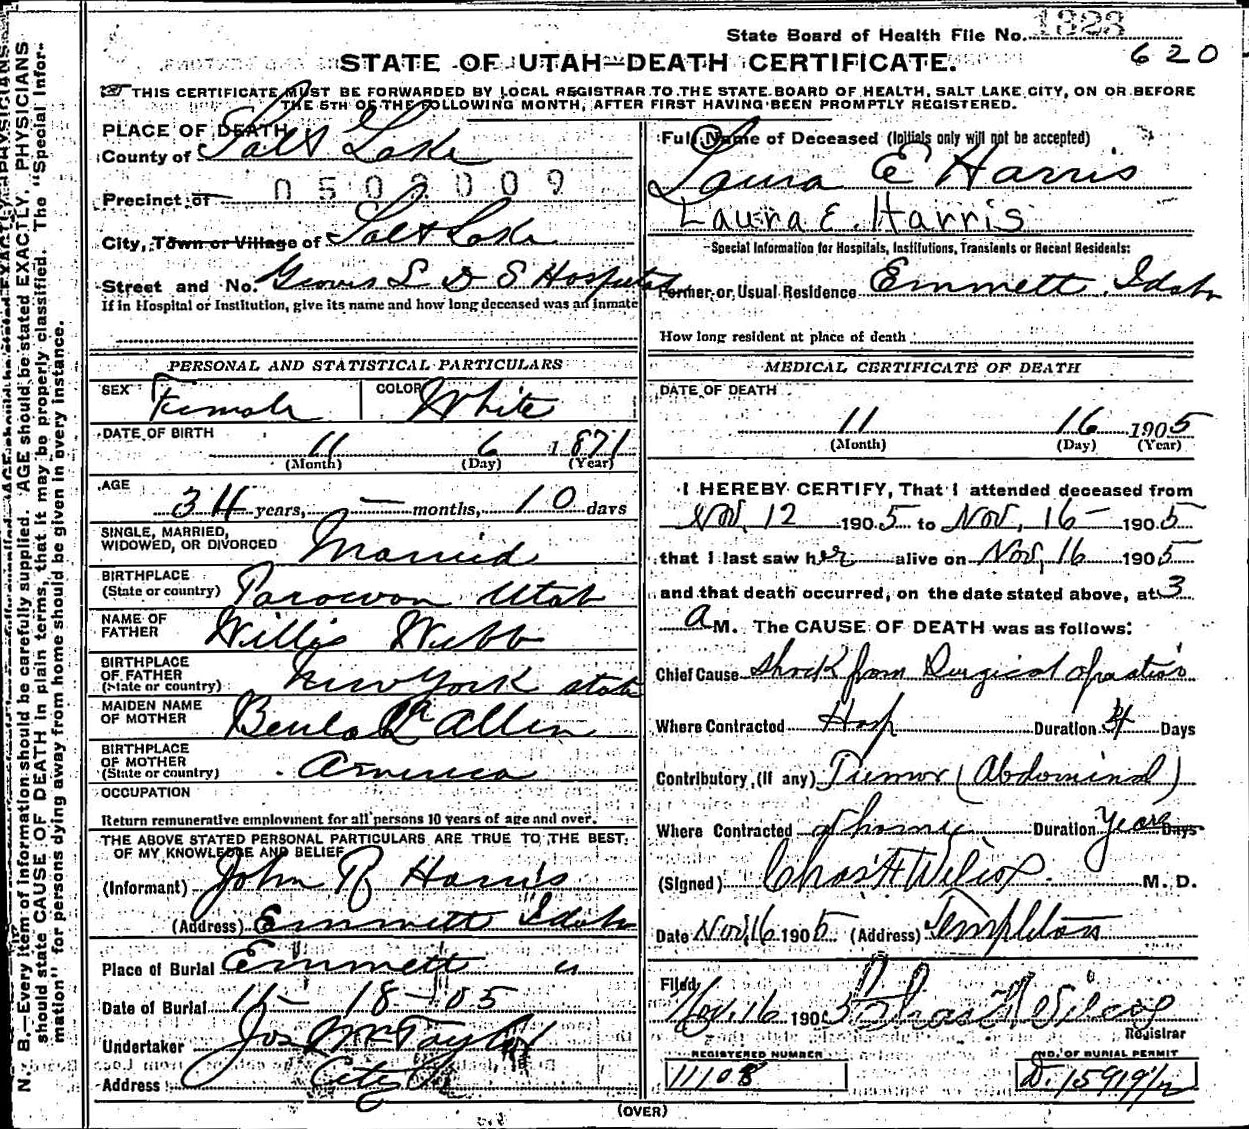 State Board of Health File No. 1323
620
STATE OF UTAH—DEATH CERTIFICATE.
THIS CERTIFICATE MUST BE FORWARDED BY LOCAL REGISTRAR TO THE STATE BOARD OF HEALTH, SALT LAKE CITY, ON OR BEFORE
THE 5TH OF THE FOLLOWING MONTH, AFTER FIRST HAVING BEEN PROMPTLY REGISTERED.
PLACE OF DEATH
County of Salt Lake
Precinct of 0502009
City, Town or Village of Salt Lake
Street and No. L D S Hospital
If in Hospital or Institution, give its name and how long deceased was an inmate
PERSONAL AND STATISTICAL PARTICULARS
SEX Female COLOR White
DATE OF BIRTH
11 6 1871
(Month) (Day) (Year)
AGE
34 years, — months, 10 days
SINGLE, MARRIED,
WIDOWED, OR DIVORCED Married
BIRTHPLACE
(State or country) Parowon Utah
NAME OF
FATHER Willis Webb
BIRTHPLACE
OF FATHER
(State or country) New York state
MAIDEN NAME
OF MOTHER Beula Allen
BIRTHPLACE
OF MOTHER
(State or country) America
OCCUPATION
Return remunerative employment for all persons 10 years of age and over.
THE ABOVE STATED PERSONAL PARTICULARS ARE TRUE TO THE BEST
OF MY KNOWLEDGE AND BELIEF
(Informant) John R Harris
(Address) Emmett Idaho
Place of Burial Emmett "
Date of Burial 11-18-05
Undertaker Jos Wm Taylor
Address City
Full Name of Deceased (Initials only will not be accepted)
Laura E Harris
Laura E. Harris
Special Information for Hospitals, Institutions, Transients or Recent Residents:
Former or Usual Residence Emmett, Idaho
How long resident at place of death
MEDICAL CERTIFICATE OF DEATH
DATE OF DEATH
11 16 1905
(Month) (Day) (Year)
I HEREBY CERTIFY, That I attended deceased from
Nov, 12 1905 to Nov, 16 - 1905
that I last saw her alive on Nov, 16 1905
and that death occurred, on the date stated above, at 3
a M. The CAUSE OF DEATH was as follows:
Chief Cause Shock from Surgical operation
Where Contracted Hosp Duration 4 Days
Contributory (If any) Tumor (Abdominal)
Where Contracted at home Duration Years Days
(Signed) Chas F Wilcox M. D.
Date Nov, 16 1905 (Address) Templeton
Filed Nov. 16 1905 Chas F Wilcox
Registrar
REGISTERED NUMBER
11108
NO. OF BURIAL PERMIT
D. 15919 1/2
(OVER)
N. B.—Every item of information should be carefully supplied. AGE should be stated EXACTLY. PHYSICIANS
should state CAUSE OF DEATH in plain terms, that it may be properly classified. The "Special Infor-
mation" for persons dying away from home should be given in every instance.